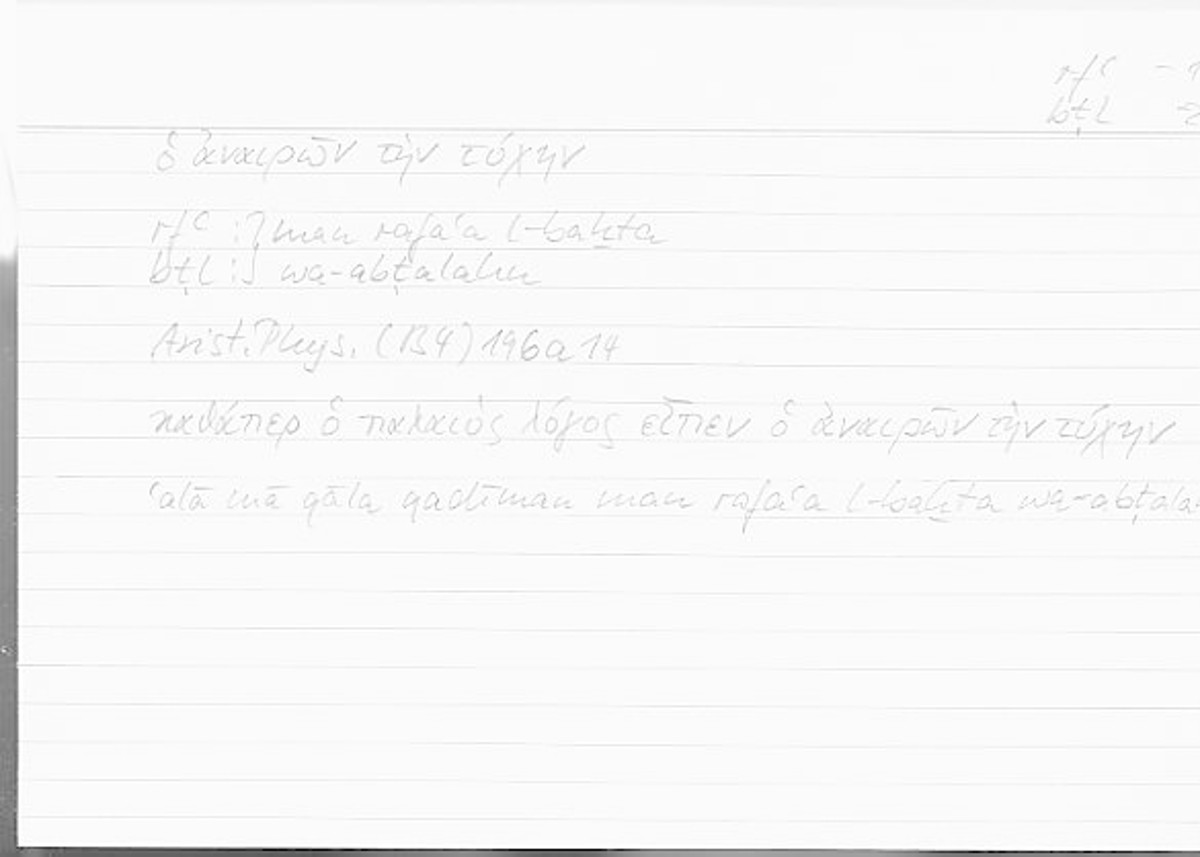 rfʿ
bṭl
ὁ ἀναιρῶν τὴν τύχην
rfʿ :} man rafaʿa l-baḫta
bṭl :} wa-abṭalahu
Arist. Phys. (B4) 196a14
καθάπερ ὁ παλαιὸς λόγος εἶπεν ὁ ἀναιρῶν τὴν τύχην
ʿalā mā qāla qadīman man rafaʿa l-baḫta wa-abṭala